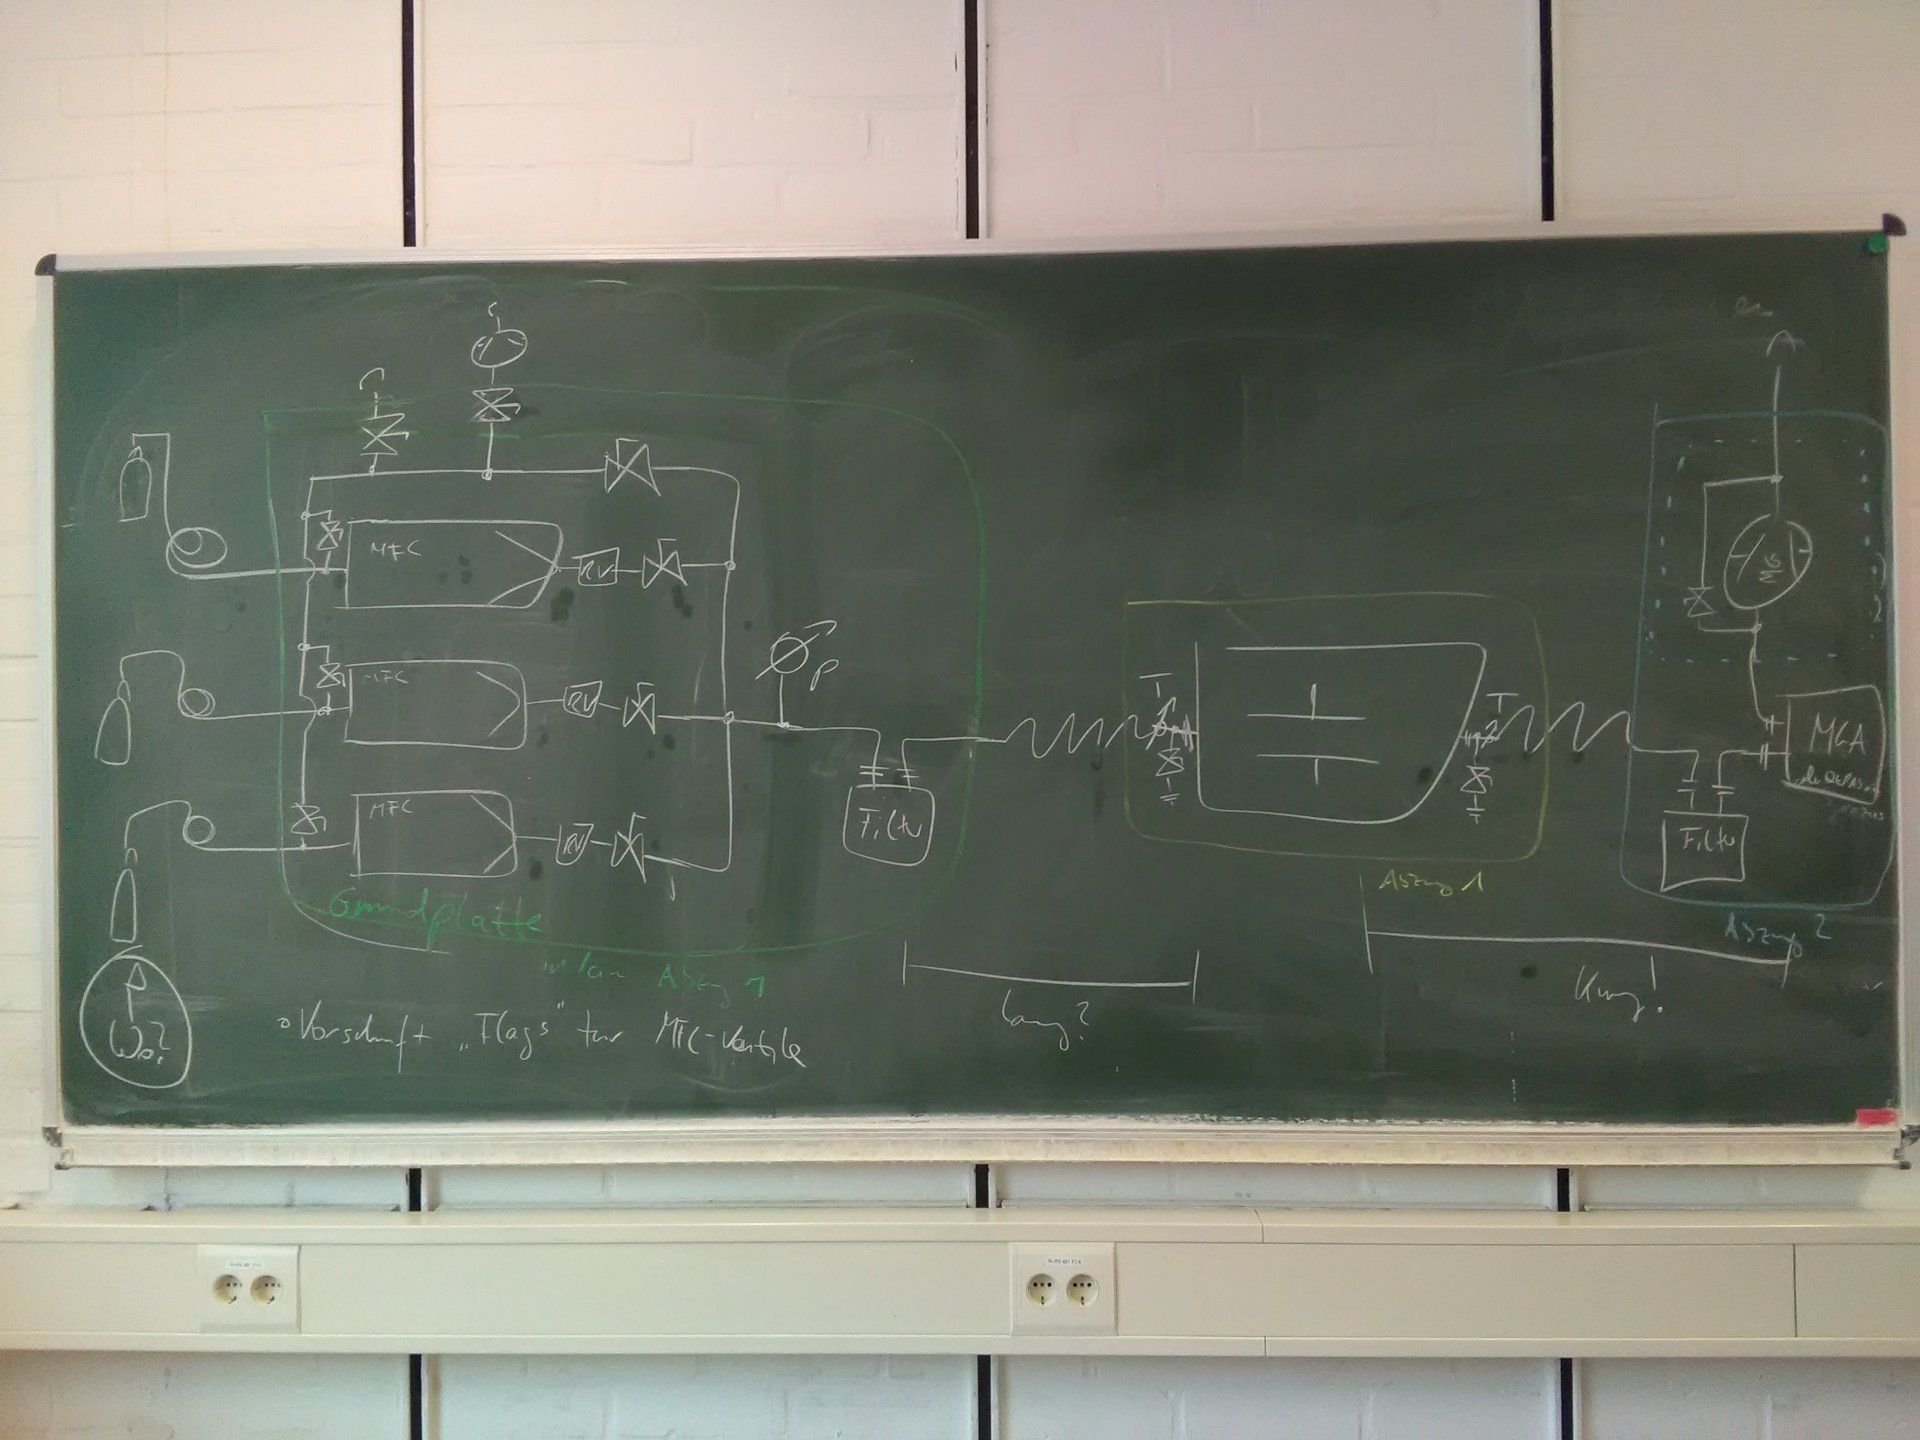 MFC
RV
MFC
RV
MFC
RV
P
Filter
Grundplatte
in/an Abzug 1
Wo?
Vorschrift „Flags" für MFC-Ventile
lang?
T
T
Abzug 1
Kurz!
MGA
Filter
Abzug 2